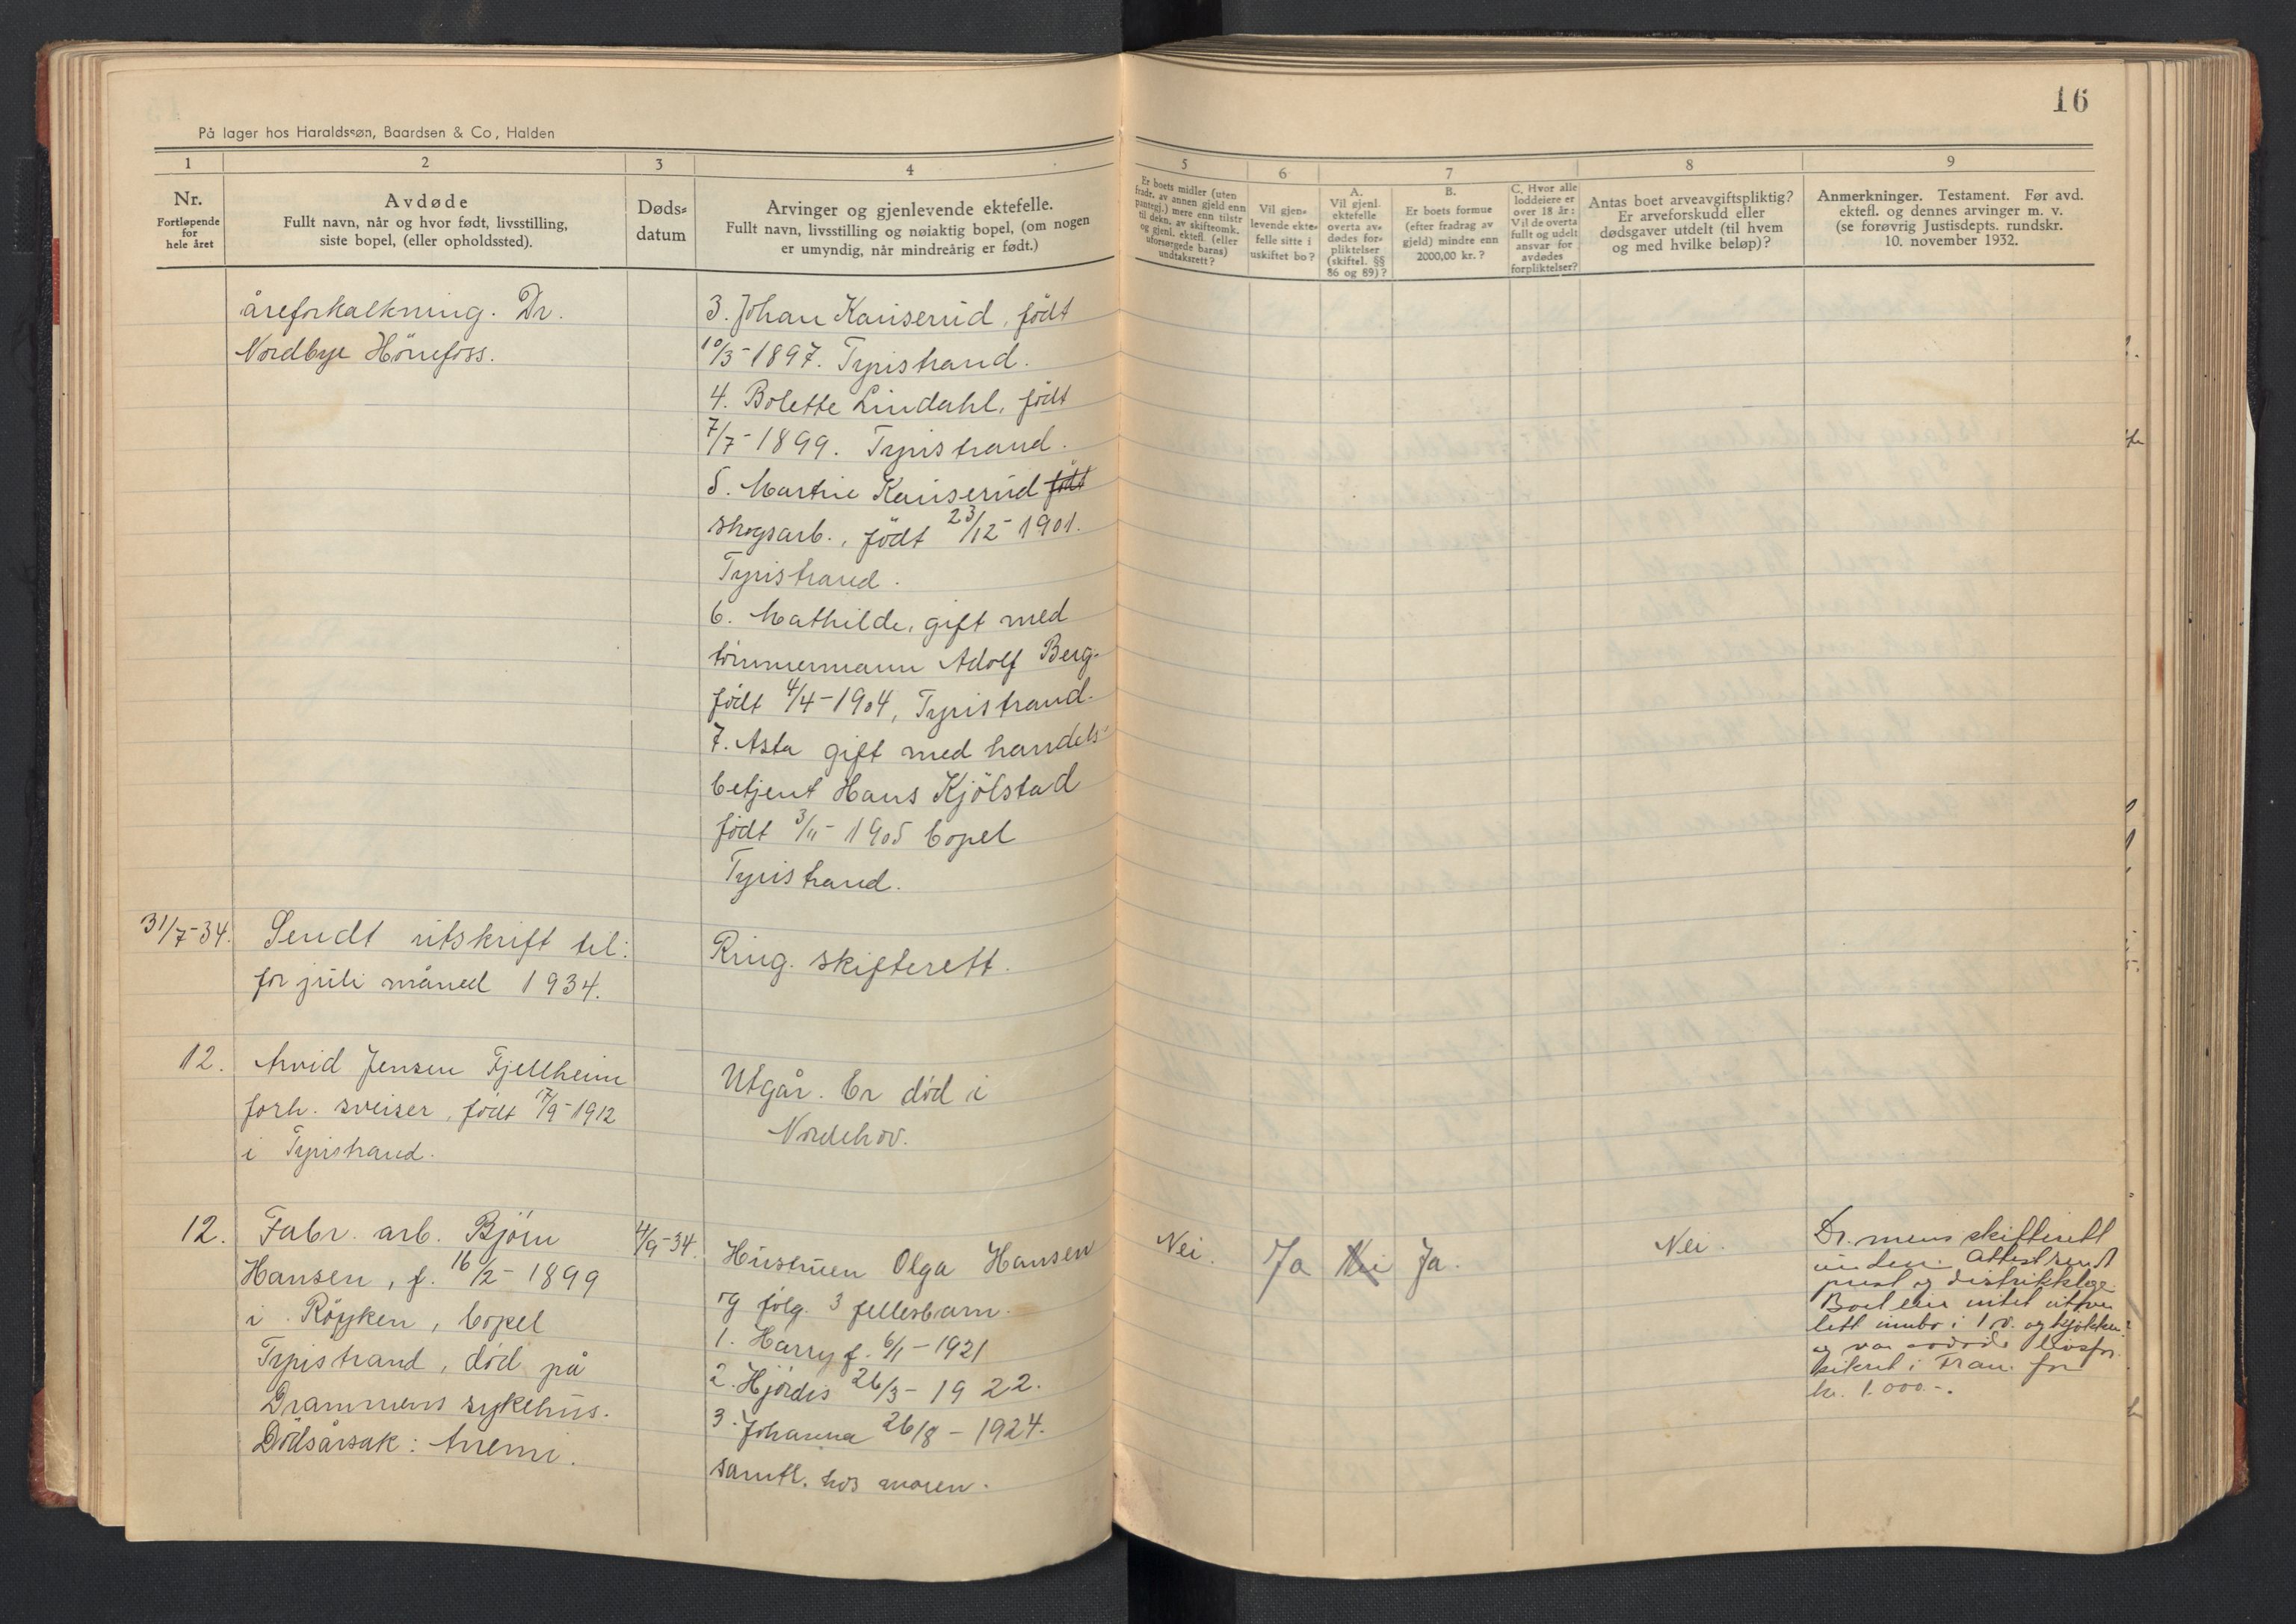 16
På lager hos Haraldssøn, Baardsen & Co, Halden
1
2
3
4
5
6
7
8
9
Nr.
Fortløpende
for
hele året
Avdøde
Fullt navn, når og hvor født, livsstilling,
siste bopel, (eller opholdssted).
Døds-
datum
Arvinger og gjenlevende ektefelle.
Fullt navn, livsstilling og nøiaktig bopel, (om nogen
er umyndig, når mindreårig er født.)
Er boets midler (uten
fradr. av annen gjeld enn
pantegj.) mere enn tilstr.
til dekn. av skifteomk.
og gjenl. ektef. (eller
uforsørgede barns)
undtaksrett?
Vil gjen-
levende ekte-
felle sitte i
uskiftet bo?
A.
Vil gjenl.
ektefelle
overta av-
dødes for-
pliktelser
(skiftel. §§
86 og 89)?
B.
Er boets formue
(efter fradrag av
gjeld) mindre enn
2000,00 kr.?
C. Hvor alle
loddeiere er
over 18 år:
Vil de overta
fullt og udelt
ansvar for
avdødes
forpliktelser?
Antas boet arveavgiftspliktig?
Er arveforskudd eller
dødsgaver utdelt (til hvem
og med hvilke beløp)?
Anmerkninger. Testament. Før avd.
ektefl. og dennes arvinger m. v.
(se forøvrig Justisdepts. rundskr.
10. november 1932.
åreforkalkning. Dr.
Nordbye Hönefoss.
3. Johan Kauserud, födt
10/3-1897. Tyristrand.
4. Bolette Lindahl, födt
7/7-1899. Tyristrand.
5. Martin Kauserud födt
skogsarb., födt 23/12-1901.
Tyristrand.
6. Mathilde, gift med
tömmermann Adolf Berg.
födt 4/4-1904, Tyristrand.
7. Asta gift med handels-
betjent Hans Kjölstad
födt 3/11-1905 bopel
Tyristrand.
31/7-34. Sendt utskrift til: Ring. skifterett.
for juli måned 1934.
12. Arvid Jensen Fjellheim
forh. sveiser, födt 7/9-1912
i Tyristrand.
Utgår. Er död i
Norderhov.
12. Fabr. arb. Björn
Hansen, f. 16/2-1899
i Röyken, bopel
Tyristrand, död på
Drammens sykehus.
Dödsårsak: Anemi.
4/9-34.
Hustruen Olga Hansen
og fölg. 3 fellesbarn.
1. Harry f. 6/1-1921
2. Hjördis 26/3-1922.
3. Johanna 26/8-1924.
samtl. hos moren.
Nei.
Ja
Nei
Ja.
Nei.
Dr.mens skifterett
underr. Attest sendt
prest og distriktslege.
Boet eier intet utover
litt innbo i 1 v. og kjökken
og var avdöde livsfor-
sikret i Fram for
kr. 1.000-.